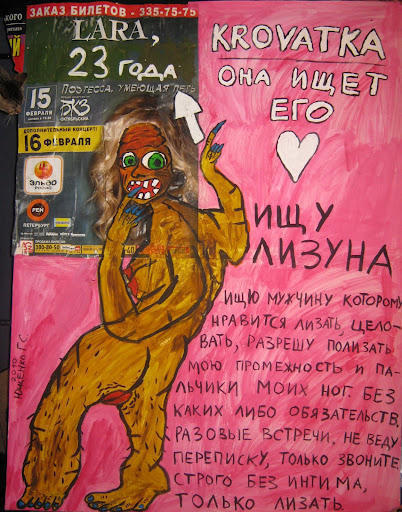 ЗАКАЗ БИЛЕТОВ - 335-75-75
LARA,
23 ГОДА
ПОЭТЕССА, УМЕЮЩАЯ ПЕТЬ
15
ФЕВРАЛЯ
БКЗ
ОКТЯБРЬСКИЙ
ДОПОЛНИТЕЛЬНЫЙ КОНЦЕРТ!
16 ФЕВРАЛЯ
ЭЛЬДО
РЕН
ПЕТЕРБУРГ
KROVATKA
ОНА ИЩЕТ
ЕГО
ИЩУ
ЛИЗУНА
ИЩЮ МУЖЧИНУ КОТОРОМУ
НРАВИТСЯ ЛИЗАТЬ, ЦЕЛО-
ВАТЬ, РАЗРЕШУ ПОЛИЗАТЬ
МОЮ ПРОМЕЖНОСТЬ И ПА-
ЛЬЧИКИ МОИХ НОГ. БЕЗ
КАКИХ ЛИБО ОБЯЗАТЕЛЬСТВ,
РАЗОВЫЕ ВСТРЕЧИ. НЕ ВЕДУ
ПЕРЕПИСКУ, ТОЛЬКО ЗВОНИТЕ
СТРОГО БЕЗ ИНТИМА,
ТОЛЬКО ЛИЗАТЬ.
2010